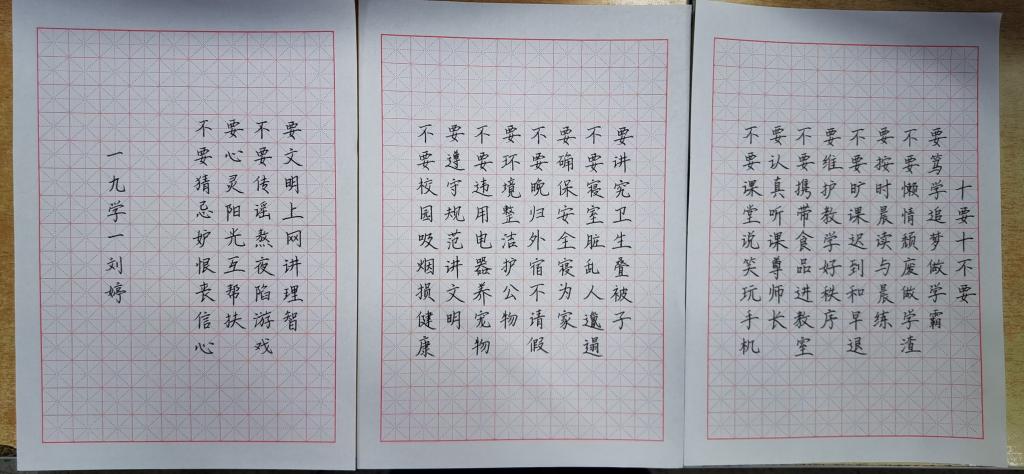 十要十不要
要笃学追梦做学霸
不要懒情颓废做学渣
要按时晨读与晨练
不要旷课迟到和早退
要维护教学好秩序
不要携带食品进教室
要认真听课尊师长
不要课堂说笑玩手机
要讲究卫生叠被子
不要寝室脏乱人邋遢
要确保安全寝为家
不要晚归外宿不请假
要环境整洁护公物
不要违用电器养宠物
要遵守规范讲文明
不要校园吸烟损健康
要文明上网讲理智
不要传谣熬夜陷游戏
要心灵阳光互帮扶
不要猜忌妒恨丧信心
一九学一刘婷